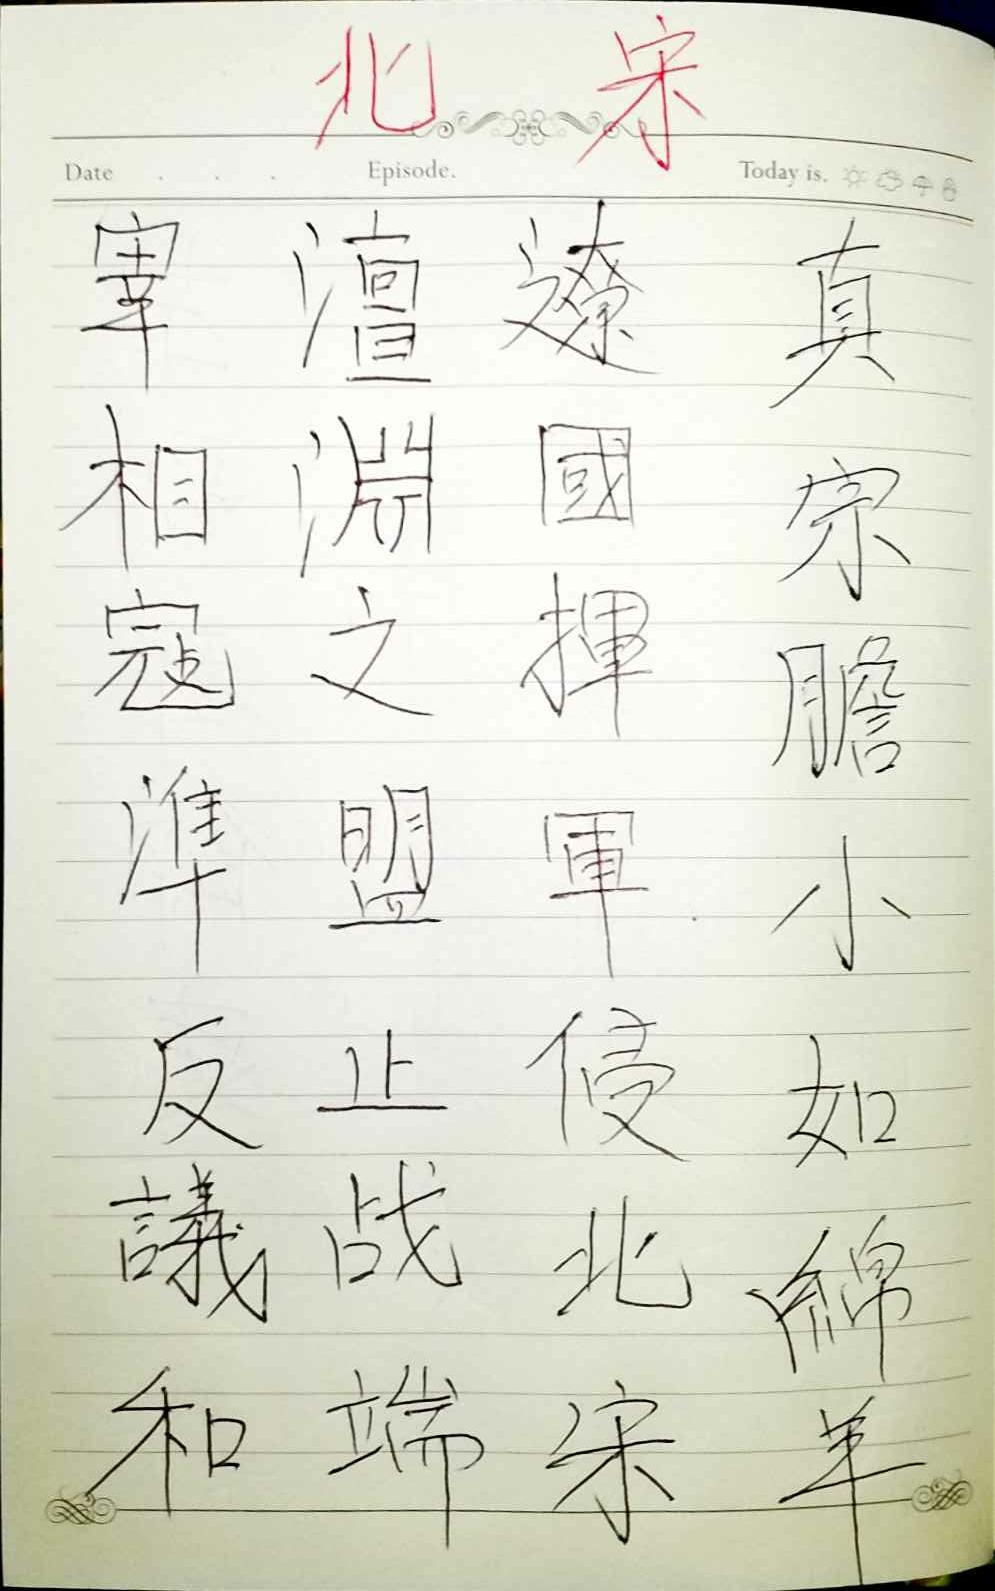 北宋
Date . . . Episode. Today is.
真宗膽小如綿羊
遼國揮軍侵北宋
澶淵之盟止战端
宰相寇準反議和